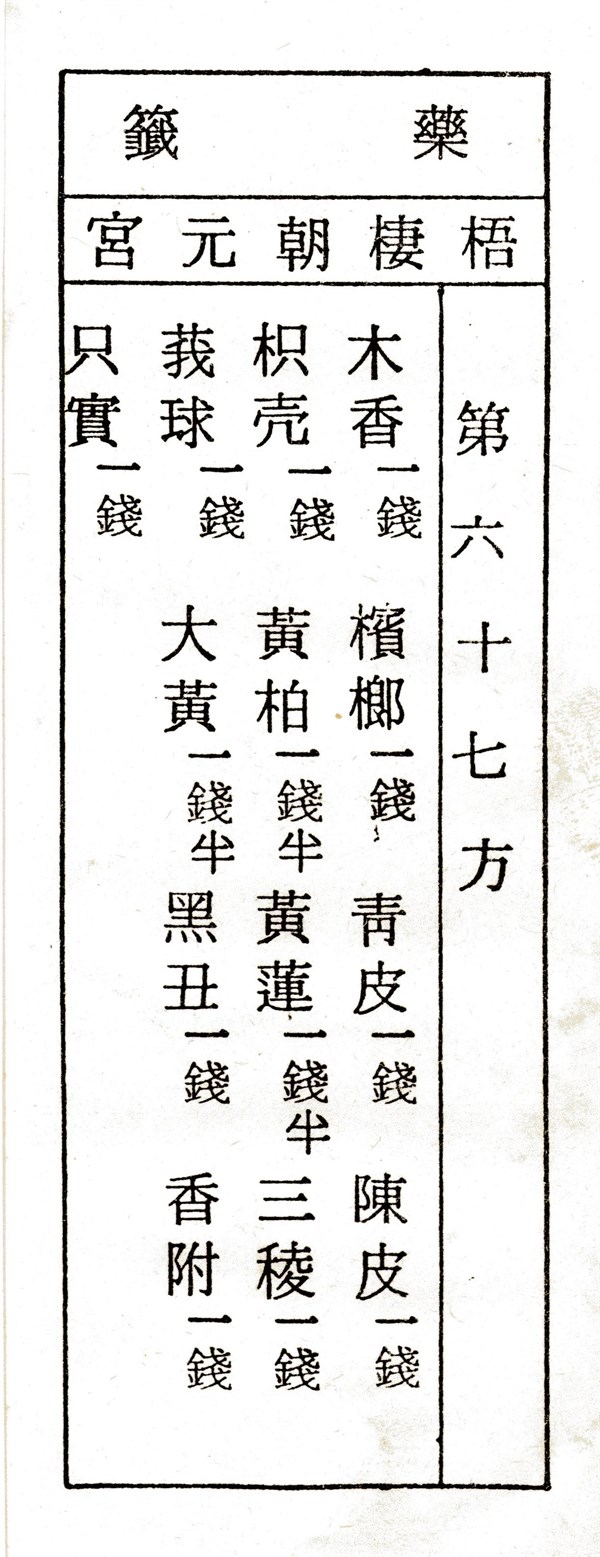 藥籤
梧棲朝元宮
第六十七方
木香一錢 檳榔一錢 青皮一錢 陳皮一錢
枳壳一錢 黃柏一錢半 黃蓮一錢半 三稜一錢
莪球一錢 大黃一錢半 黑丑一錢 香附一錢
只實一錢